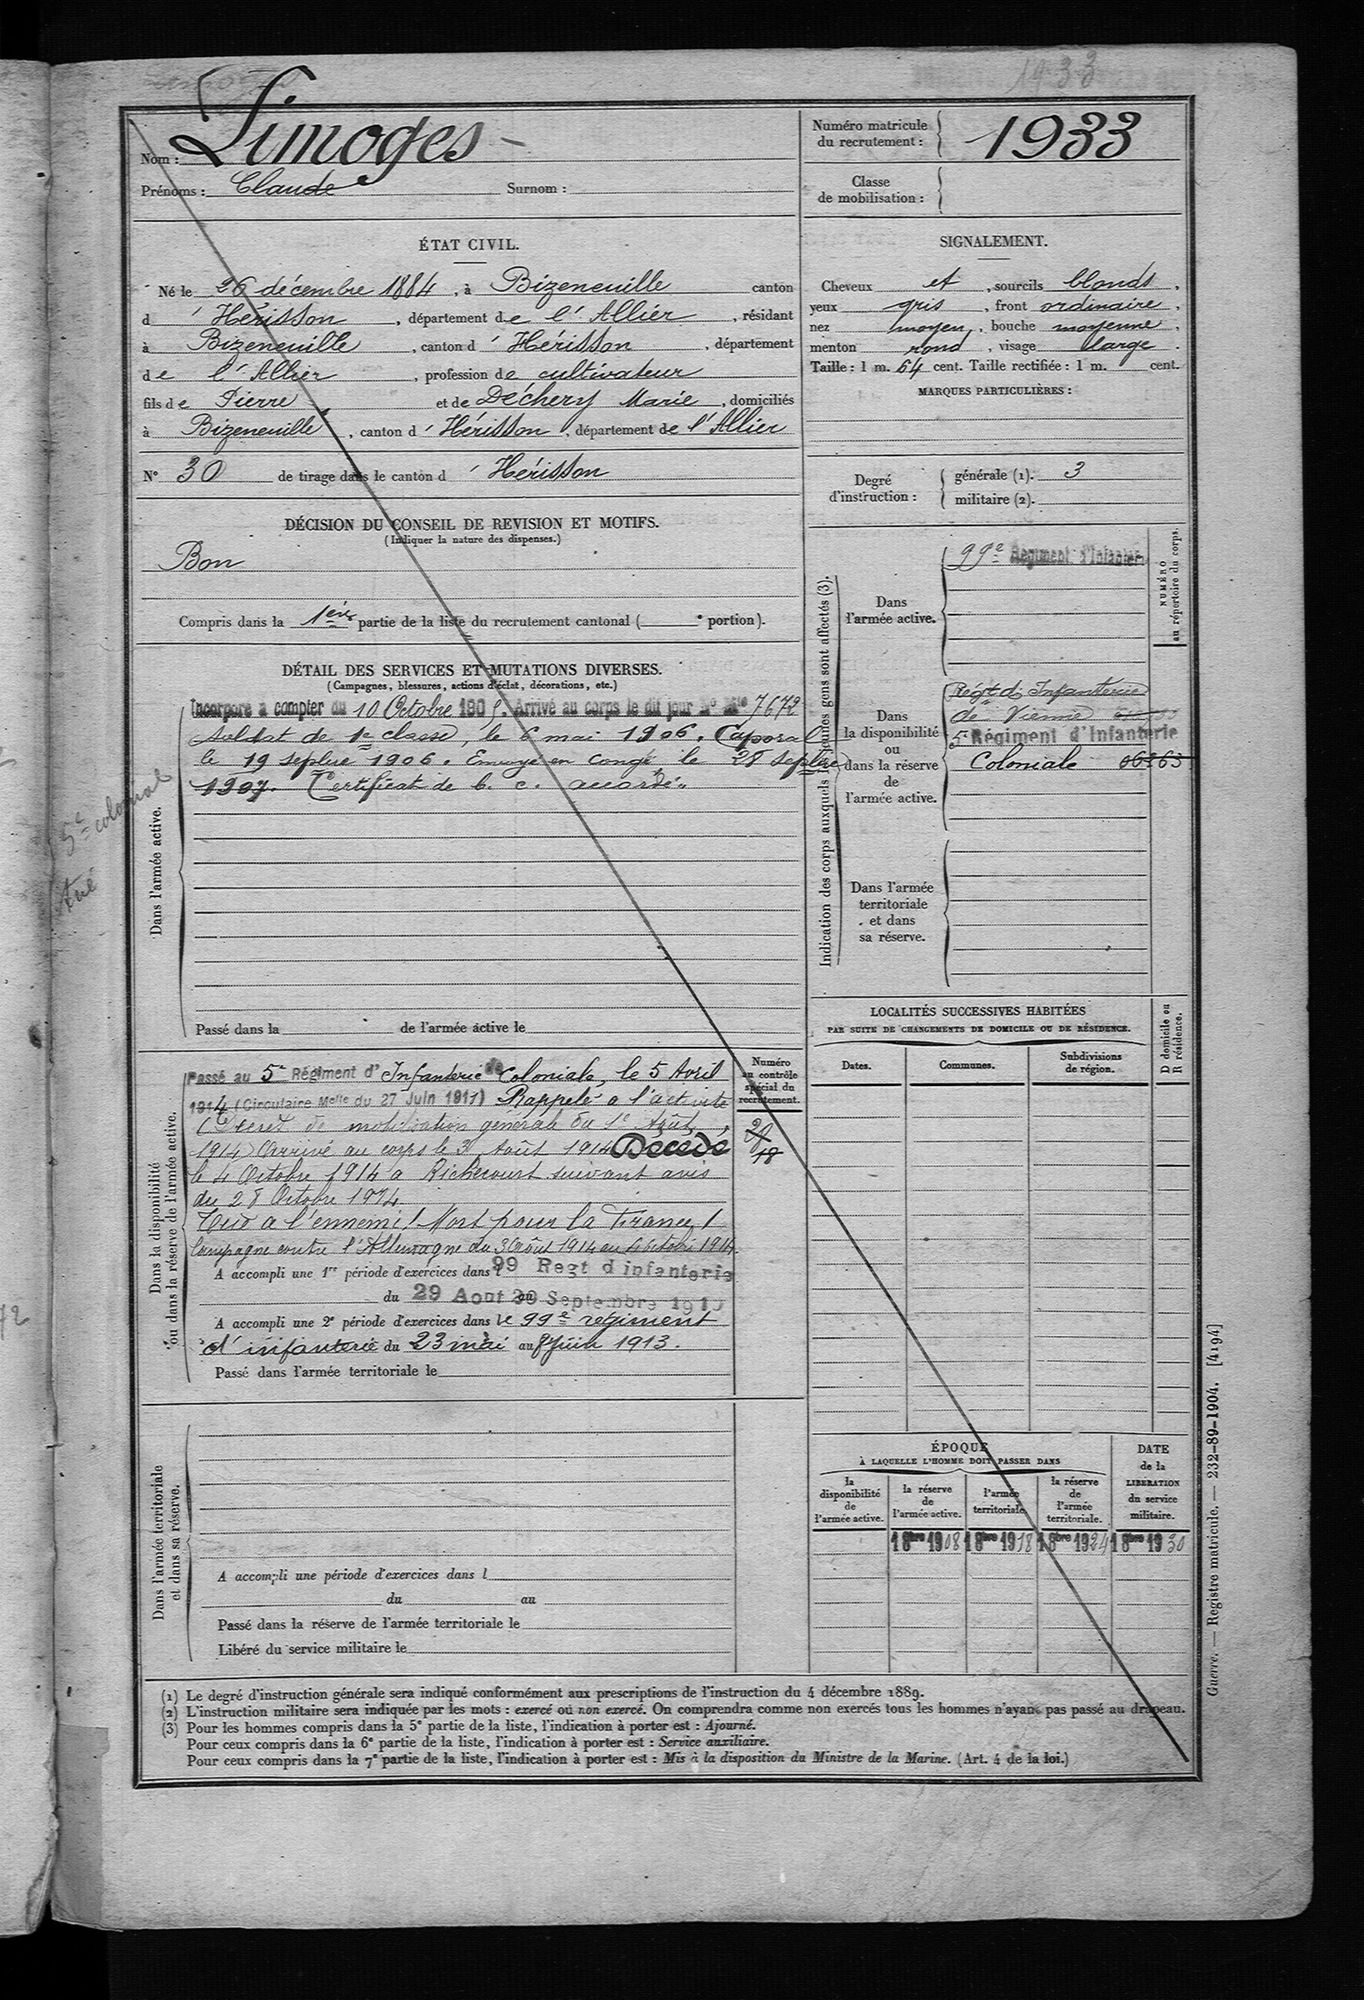 1933
Limoges
Nom :
Prénoms : Claude Surnom :
Numéro matricule du recrutement : 1933
Classe de mobilisation :
ÉTAT CIVIL.
Né le 26 décembre 1884, à Bizeneuille canton
d'Hérisson, département de l'Allier, résidant
à Bizeneuille, canton d'Hérisson, département
de l'Allier, profession de cultivateur
fils de Pierre et de Déchery Marie, domiciliés
à Bizeneuille, canton d'Hérisson, département de l'Allier
N° 30 de tirage dans le canton d'Hérisson
SIGNALEMENT.
Cheveux et, sourcils blonds,
yeux gris, front ordinaire,
nez moyen, bouche moyenne,
menton rond, visage large.
Taille : 1 m. 64 cent. Taille rectifiée : 1 m. cent.
MARQUES PARTICULIÈRES :
Degré d'instruction :
générale (1). 3
militaire (2).
DÉCISION DU CONSEIL DE REVISION ET MOTIFS.
(Indiquer la nature des dispenses.)
Bon
Compris dans la 1ère partie de la liste du recrutement cantonal ( e portion).
DÉTAIL DES SERVICES ET MUTATIONS DIVERSES.
(Campagnes, blessures, actions d'éclat, décorations, etc.)
Dans l'armée active.
Incorporé à compter du 10 Octobre 1905. Arrivé au corps le dit jour No Mle 7672
Soldat de 1e classe, le 6 mai 1906. Caporal
le 19 septbre 1906. Envoyé en congé le 28 septbre
1907. Certificat de b. c. accordé.
5e colonial
tué
Passé dans la de l'armée active le
Indication des corps auxquels les jeunes gens sont affectés (3).
NUMÉRO au répertoire du corps.
Dans l'armée active.
99e Régiment d'Infanterie
Dans la disponibilité ou dans la réserve de l'armée active.
Régt d'Infanterie
de Vienne
5e Régiment d'Infanterie
Coloniale 06263
Dans l'armée territoriale et dans sa réserve.
LOCALITÉS SUCCESSIVES HABITÉES
PAR SUITE DE CHANGEMENTS DE DOMICILE OU DE RÉSIDENCE.
D domicile ou R résidence.
Dates. Communes. Subdivisions de région.
Dans la disponibilité ou dans la réserve de l'armée active.
Numéro au contrôle spécial du recrutement.
Passé au 5e Régiment d'Infanterie Coloniale, le 5 Avril
1914 (Circulaire Melle du 27 Juin 1911) Rappelé à l'activité
(Décret de mobilisation générale du 1e Août
1914) Arrivé au corps le 3 Août 1914 Décédé
le 4 Octobre 1914 à Richecourt suivant avis
du 28 Octobre 1914
Tué à l'ennemi! Mort pour la France!
Campagne contre l'Allemagne du 3 Août 1914 au 4 octobre 1914.
A accompli une 1re période d'exercices dans l 99 Regt d infanterie
du 29 Aout au 20 Septembre 1910
A accompli une 2e période d'exercices dans le 99e régiment
d'infanterie du 23 mai au 8 juin 1913.
Passé dans l'armée territoriale le
Dans l'armée territoriale et dans sa réserve.
A accompli une période d'exercices dans l
du au
Passé dans la réserve de l'armée territoriale le
Libéré du service militaire le
ÉPOQUE
À LAQUELLE L'HOMME DOIT PASSER DANS
la disponibilité de l'armée active.
la réserve de l'armée active.
l'armée territoriale.
la réserve de l'armée territoriale.
DATE de la LIBÉRATION du service militaire.
1 8bre 1908 1 8bre 1918 1 8bre 1924 1 8bre 1930
(1) Le degré d'instruction générale sera indiqué conformément aux prescriptions de l'instruction du 4 décembre 1889.
(2) L'instruction militaire sera indiquée par les mots : exercé ou non exercé. On comprendra comme non exercés tous les hommes n'ayant pas passé au drapeau.
(3) Pour les hommes compris dans la 5e partie de la liste, l'indication à porter est : Ajourné.
Pour ceux compris dans la 6e partie de la liste, l'indication à porter est : Service auxiliaire.
Pour ceux compris dans la 7e partie de la liste, l'indication à porter est : Mis à la disposition du Ministre de la Marine. (Art. 4 de la loi.)
Guerre. — Registre matricule. — 232-89-1904. [4194]